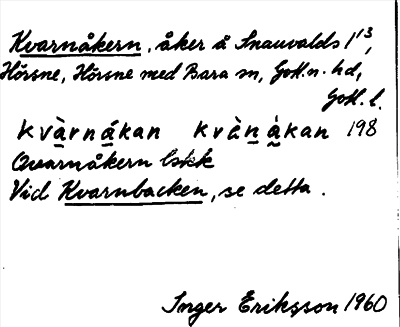 Kvarnåkern, åker å Snauvalds 1¹³,
Hörsne, Hörsne med Bara sn, Gotl. n. hd,
Gotl. l.
kvàrnákan kvàṇàkan 198
Qvarnåkern lskk
Vid Kvarnbacken, se detta.
Inger Eriksson 1960